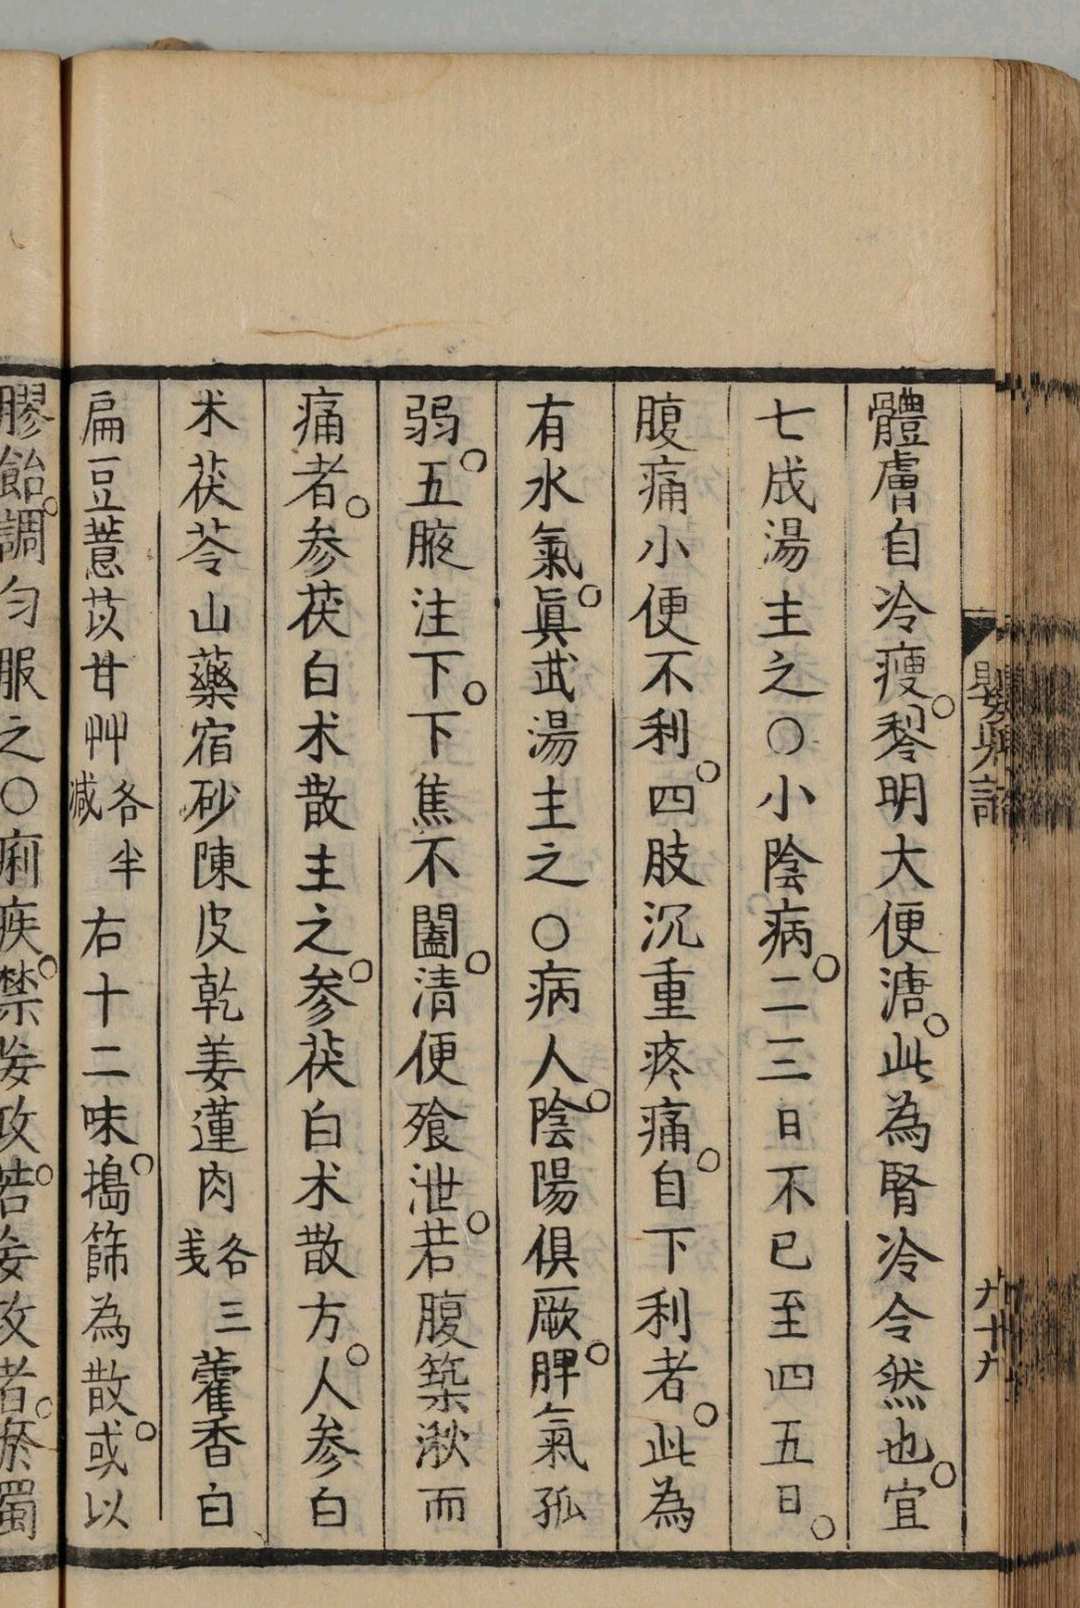 體膚自冷瘦。黎明大便溏。此為腎冷令然也。宜
七成湯主之○小陰病。二三日不已至四五日。
腹痛小便不利。四肢沉重疼痛。自下利者。此為
有水氣。眞武湯主之○病人。陰陽俱厥。脾氣孤
弱。五腋注下。下焦不闔。清便飱泄。若腹築湫而
痛者。参茯白朮散主之。参茯白朮散方。人参白
朮茯苓山藥宿砂陳皮乾姜蓮肉各三戔藿香白
扁豆薏苡甘艸各半减右十二味。搗篩為散。或以
膠飴。調勻服之○痢疾。禁妄攻。若妄攻者。瘀蜀
九十九